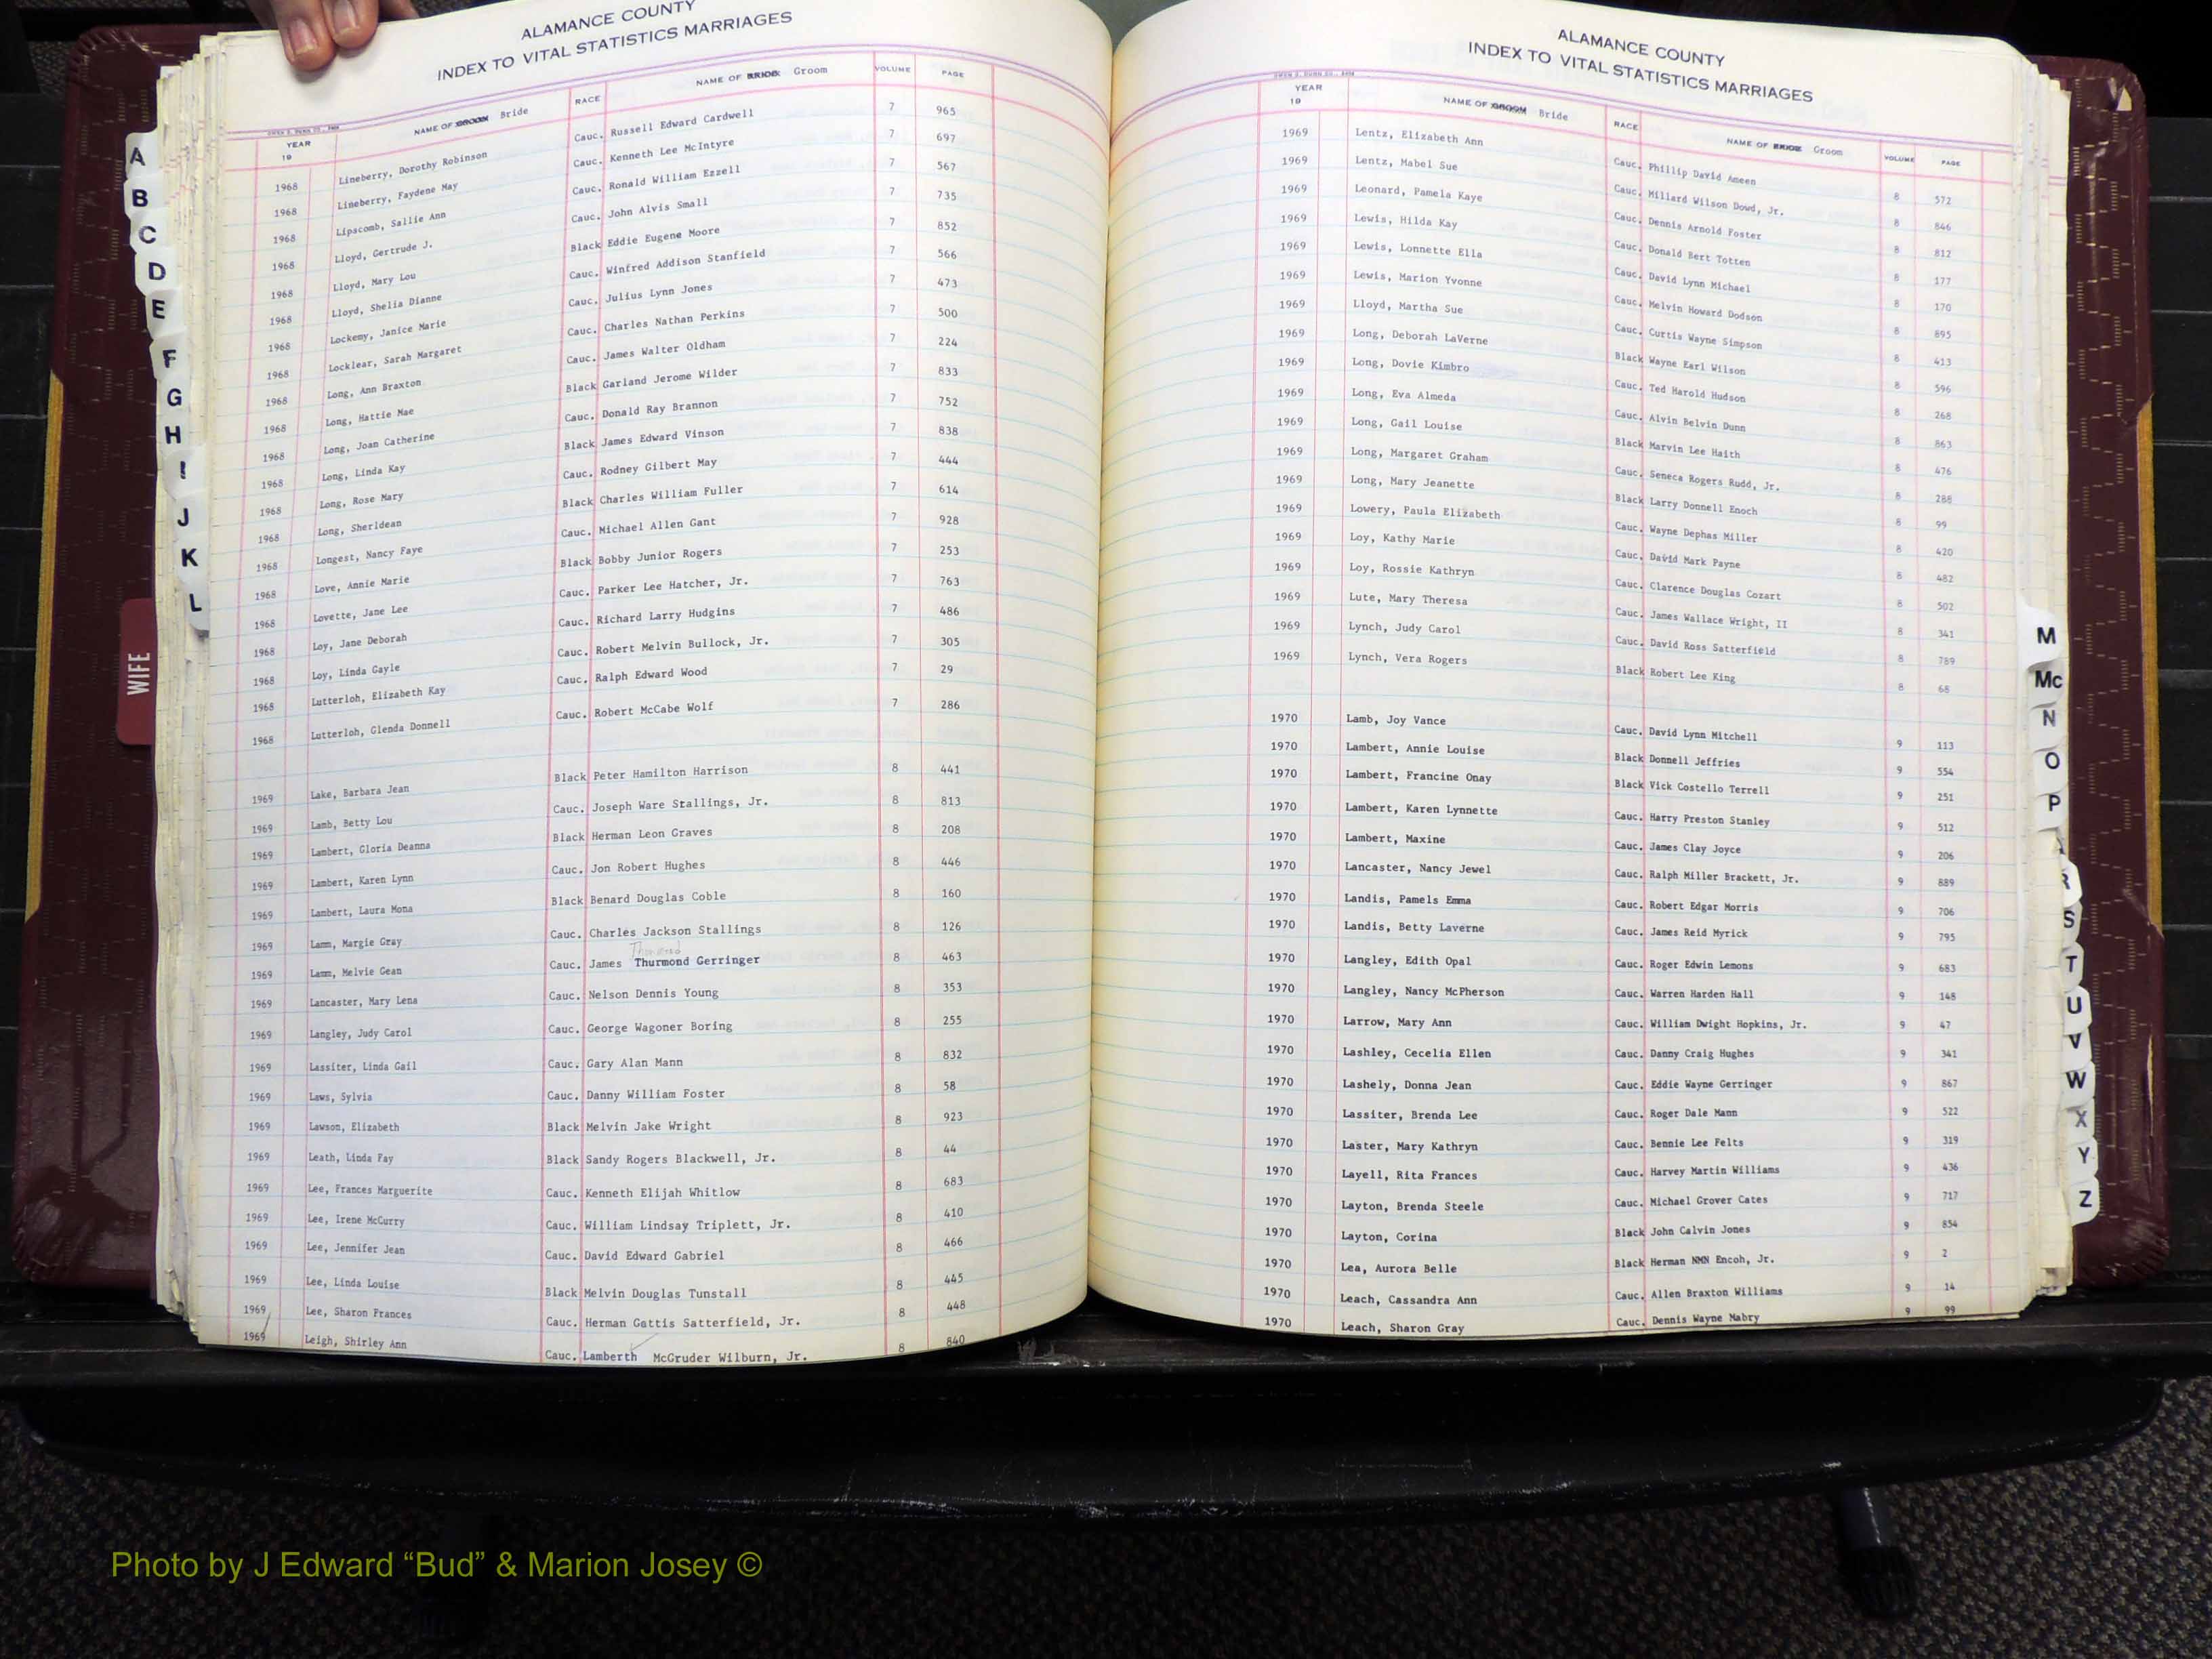 ALAMANCE COUNTY
INDEX TO VITAL STATISTICS MARRIAGES
YEAR 19 NAME OF GROOM Bride RACE NAME OF BRIDE Groom VOLUME PAGE
1968 Lineberry, Dorothy Robinson Cauc. Russell Edward Cardwell 7 965
1968 Lineberry, Faydene May Cauc. Kenneth Lee McIntyre 7 697
1968 Lipscomb, Sallie Ann Cauc. Ronald William Ezzell 7 567
1968 Lloyd, Gertrude J. Cauc. John Alvis Small 7 735
1968 Lloyd, Mary Lou Black Eddie Eugene Moore 7 852
1968 Lloyd, Shelia Dianne Cauc. Winfred Addison Stanfield 7 566
1968 Lockemy, Janice Marie Cauc. Julius Lynn Jones 7 473
1968 Locklear, Sarah Margaret Cauc. Charles Nathan Perkins 7 500
1968 Long, Ann Braxton Cauc. James Walter Oldham 7 224
1968 Long, Hattie Mae Black Garland Jerome Wilder 7 833
1968 Long, Joan Catherine Cauc. Donald Ray Brannon 7 752
1968 Long, Linda Kay Black James Edward Vinson 7 838
1968 Long, Rose Mary Cauc. Rodney Gilbert May 7 444
1968 Long, Sheridean Black Charles William Fuller 7 614
1968 Longest, Nancy Faye Cauc. Michael Allen Gant 7 928
1968 Love, Annie Marie Black Bobby Junior Rogers 7 253
1968 Lovette, Jane Lee Cauc. Parker Lee Hatcher, Jr. 7 763
1968 Loy, Jane Deborah Cauc. Richard Larry Hudgins 7 486
1968 Loy, Linda Gayle Cauc. Robert Melvin Bullock, Jr. 7 305
1968 Lutterloh, Elizabeth Kay Cauc. Ralph Edward Wood 7 29
1968 Lutterloh, Glenda Donnell Cauc. Robert McCabe Wolf 7 286
1969 Lake, Barbara Jean Black Peter Hamilton Harrison 8 441
1969 Lamb, Betty Lou Cauc. Joseph Ware Stallings, Jr. 8 813
1969 Lambert, Gloria Deanna Black Herman Leon Graves 8 208
1969 Lambert, Karen Lynn Cauc. Jon Robert Hughes 8 446
1969 Lambert, Laura Mona Black Benard Douglas Coble 8 160
1969 Lamm, Margie Gray Cauc. Charles Jackson Stallings 8 126
Thurmond
1969 Lamm, Melvie Gean Cauc. James Thurmond Gerringer 8 463
1969 Lancaster, Mary Lena Cauc. Nelson Dennis Young 8 353
1969 Langley, Judy Carol Cauc. George Wagoner Boring 8 255
1969 Lassiter, Linda Gail Cauc. Gary Alan Mann 8 832
1969 Laws, Sylvia Cauc. Danny William Foster 8 58
1969 Lawson, Elizabeth Black Melvin Jake Wright 8 923
1969 Leath, Linda Fay Black Sandy Rogers Blackwell, Jr. 8 44
1969 Lee, Frances Marguerite Cauc. Kenneth Elijah Whitlow 8 683
1969 Lee, Irene McCurry Cauc. William Lindsay Triplett, Jr. 8 410
1969 Lee, Jennifer Jean Cauc. David Edward Gabriel 8 466
1969 Lee, Linda Louise Black Melvin Douglas Tunstall 8 445
1969 Lee, Sharon Frances Cauc. Herman Gattis Satterfield, Jr. 8 448
1969 Leigh, Shirley Ann Cauc. Lamberth McGruder Wilburn, Jr. 8 840
A
B
C
D
E
F
G
H
I
J
K
L
WIFE
ALAMANCE COUNTY
INDEX TO VITAL STATISTICS MARRIAGES
YEAR 19 NAME OF GROOM Bride RACE NAME OF BRIDE Groom VOLUME PAGE
1969 Lentz, Elizabeth Ann Cauc. Phillip David Ameen 8 572
1969 Lentz, Mabel Sue Cauc. Millard Wilson Dowd, Jr. 8 846
1969 Leonard, Pamela Kaye Cauc. Dennis Arnold Foster 8 812
1969 Lewis, Hilda Kay Cauc. Donald Bert Totten 8 177
1969 Lewis, Lonnette Ella Cauc. David Lynn Michael 8 170
1969 Lewis, Marion Yvonne Cauc. Melvin Howard Dodson 8 895
1969 Lloyd, Martha Sue Cauc. Curtis Wayne Simpson 8 413
1969 Long, Deborah LaVerne Black Wayne Earl Wilson 8 596
1969 Long, Dovie Kimbro Cauc. Ted Harold Hudson 8 268
1969 Long, Eva Almeda Cauc. Alvin Belvin Dunn 8 863
1969 Long, Gail Louise Black Marvin Lee Haith 8 476
1969 Long, Margaret Graham Cauc. Seneca Rogers Rudd, Jr. 8 288
1969 Long, Mary Jeanette Black Larry Donnell Enoch 8 99
1969 Lowery, Paula Elizabeth Cauc. Wayne Dephas Miller 8 420
1969 Loy, Kathy Marie Cauc. David Mark Payne 8 482
1969 Loy, Rossie Kathryn Cauc. Clarence Douglas Cozart 8 502
1969 Lute, Mary Theresa Cauc. James Wallace Wright, II 8 341
1969 Lynch, Judy Carol Cauc. David Ross Satterfield 8 789
1969 Lynch, Vera Rogers Black Robert Lee King 8 68
1970 Lamb, Joy Vance Cauc. David Lynn Mitchell 9 113
1970 Lambert, Annie Louise Black Donnell Jeffries 9 554
1970 Lambert, Francine Onay Black Vick Costello Terrell 9 251
1970 Lambert, Karen Lynnette Cauc. Harry Preston Stanley 9 512
1970 Lambert, Maxine Cauc. James Clay Joyce 9 206
1970 Lancaster, Nancy Jewel Cauc. Ralph Miller Brackett, Jr. 9 889
1970 Landis, Pamels Emma Cauc. Robert Edgar Morris 9 706
1970 Landis, Betty Laverne Cauc. James Reid Myrick 9 795
1970 Langley, Edith Opal Cauc. Roger Edwin Lemons 9 683
1970 Langley, Nancy McPherson Cauc. Warren Harden Hall 9 148
1970 Larrow, Mary Ann Cauc. William Dwight Hopkins, Jr. 9 47
1970 Lashley, Cecelia Ellen Cauc. Danny Craig Hughes 9 341
1970 Lashely, Donna Jean Cauc. Eddie Wayne Gerringer 9 867
1970 Lassiter, Brenda Lee Cauc. Roger Dale Mann 9 522
1970 Laster, Mary Kathryn Cauc. Bennie Lee Felts 9 319
1970 Layell, Rita Frances Cauc. Harvey Martin Williams 9 436
1970 Layton, Brenda Steele Cauc. Michael Grover Cates 9 717
1970 Layton, Corina Black John Calvin Jones 9 854
1970 Lea, Aurora Belle Black Herman NMN Encoh, Jr. 9 2
1970 Leach, Cassandra Ann Cauc. Allen Braxton Williams 9 14
1970 Leach, Sharon Gray Cauc. Dennis Wayne Mabry 9 99
M
Mc
N
O
P
R
S
T
U
V
W
X
Y
Z
Photo by J Edward “Bud” & Marion Josey ©